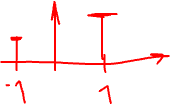 -1 1